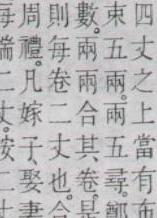 四丈之上當有
束五兩兩五尋鄭
數兩兩合其卷是
則每卷二丈也合
周禮凡嫁子娶妻
每端二丈按二